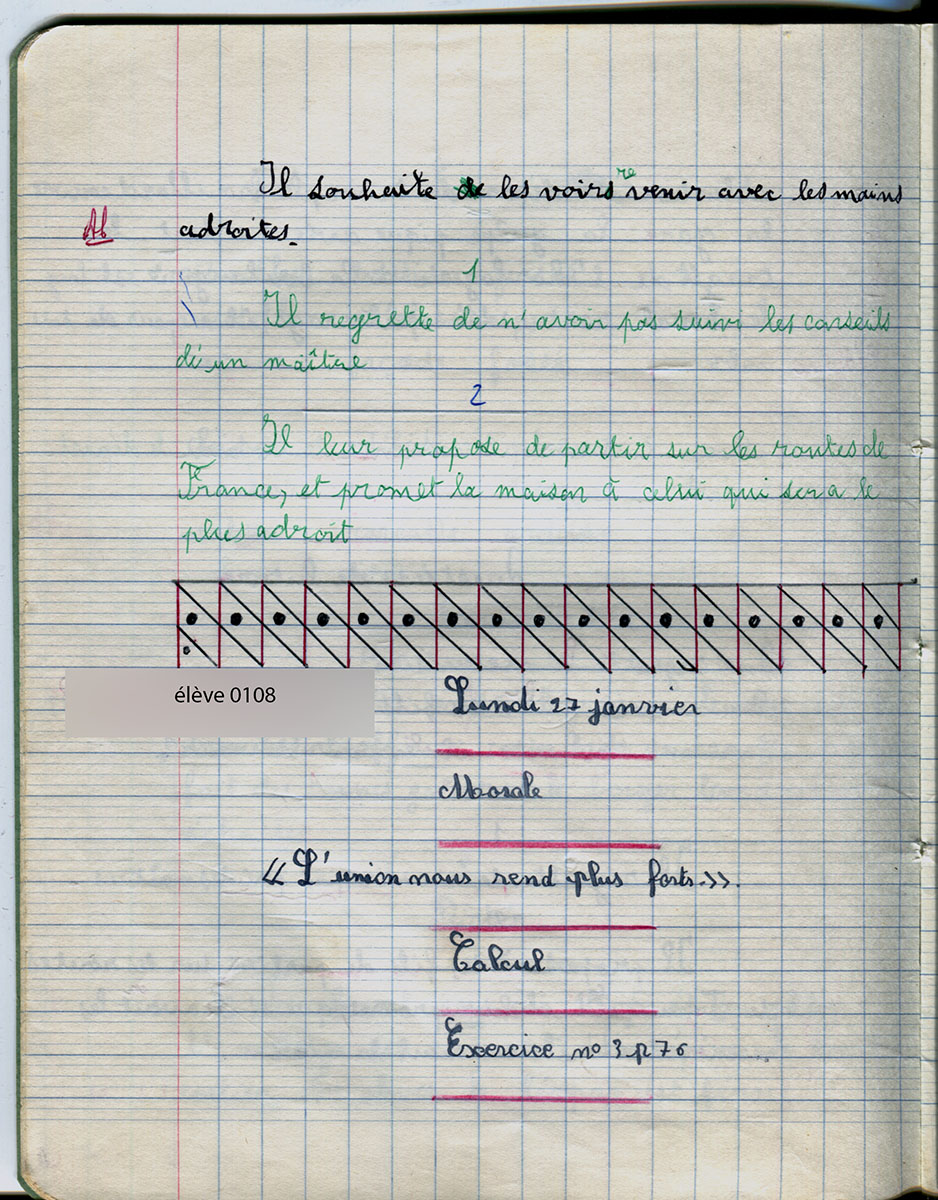 Il souhaite de les voirs revenir avec les mains
Ab
adroites.
1
Il regrette de n'avoir pas suivi les conseils
d'un maître
2
Il leur propose de partir sur les routes de
France, et promet la maison à celui qui sera le
plus adroit
élève 0108
Lundi 27 janvier
Morale
« L'union nous rend plus forts.».
Calcul
Exercice no 3 p 76